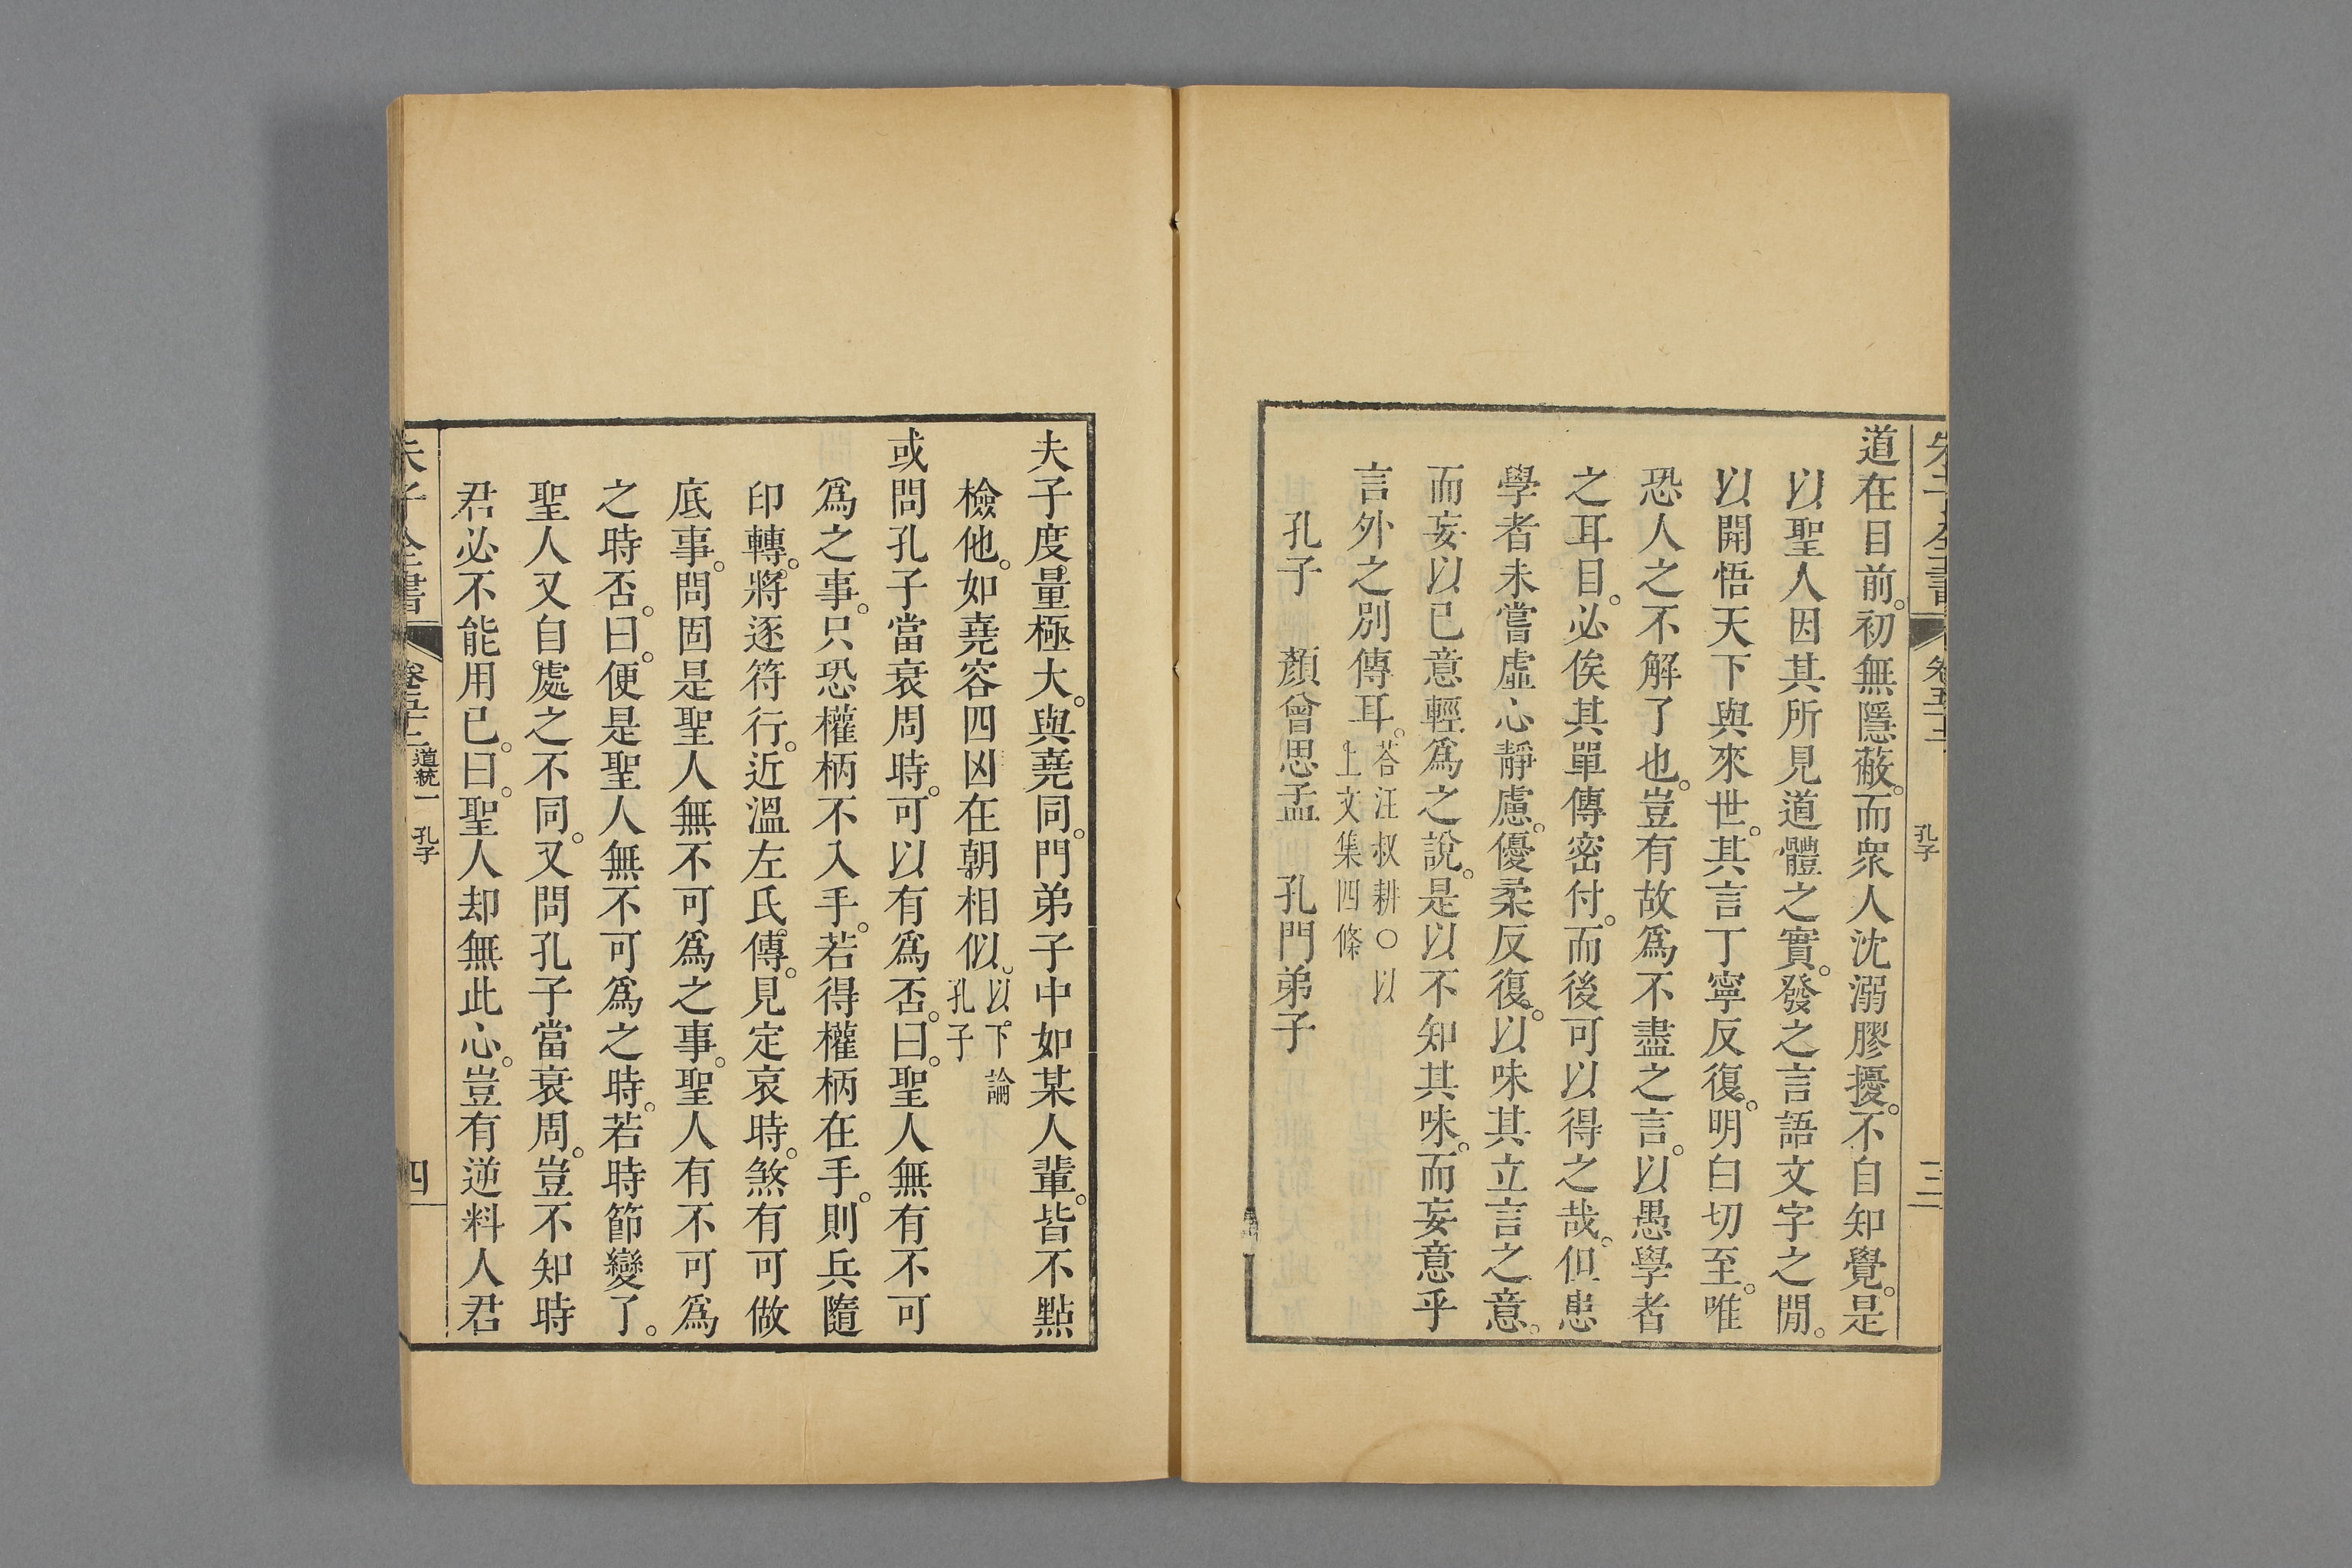 道在目前。初無隱蔽。而衆人沈溺膠擾。不自知覺。是
以聖人因其所見道體之實。發之言語文字之閒。
以開悟天下與來世。其言丁寧反復。明白切至。唯
恐人之不解了也。豈有故爲不盡之言。以愚學者
之耳目。必俟其單傳密付。而後可以得之哉。但患
學者未嘗虛心靜慮。優柔反復。以味其立言之意。
而妄以已意輕爲之說。是以不知其味。而妄意乎
言外之別傳耳。荅汪叔耕○以
上文集四條
孔子 顏曾思孟 孔門弟子
孔子
三
夫子度量極大。與堯同。門弟子中如某人輩。皆不點
檢他。如堯容四凶在朝相似。以下論
孔子
或問孔子當衰周時。可以有爲否。曰。聖人無有不可
爲之事。只恐權柄不入手。若得權柄在手。則兵隨
印轉。將逐符行。近溫左氏傳。見定哀時。煞有可做
底事。問固是聖人無不可爲之事。聖人有不可爲
之時否。曰。便是聖人無不可爲之時。若時節變了。
聖人又自處之不同。又問孔子當衰周。豈不知時
君必不能用已。曰。聖人却無此心。豈有逆料人君
朱子全書 卷五十二 道統一 孔子
四